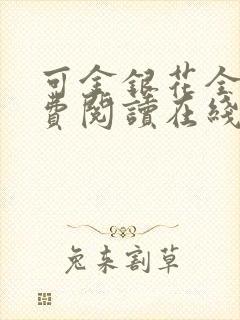 可金銀花全
費閱讀在綫
兔来割草